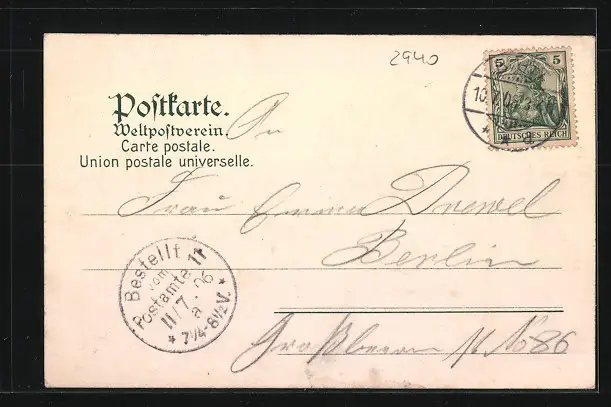 2940
5 5
DEUTSCHES REICH
10.
Postkarte.
Weltpostverein.
Carte postale.
Union postale universelle.
An
Frau Emma Drewel
Berlin
No 86
Bestellt
vom
Postamte 11
11/7. 06
a
* 7¼-8½V. *